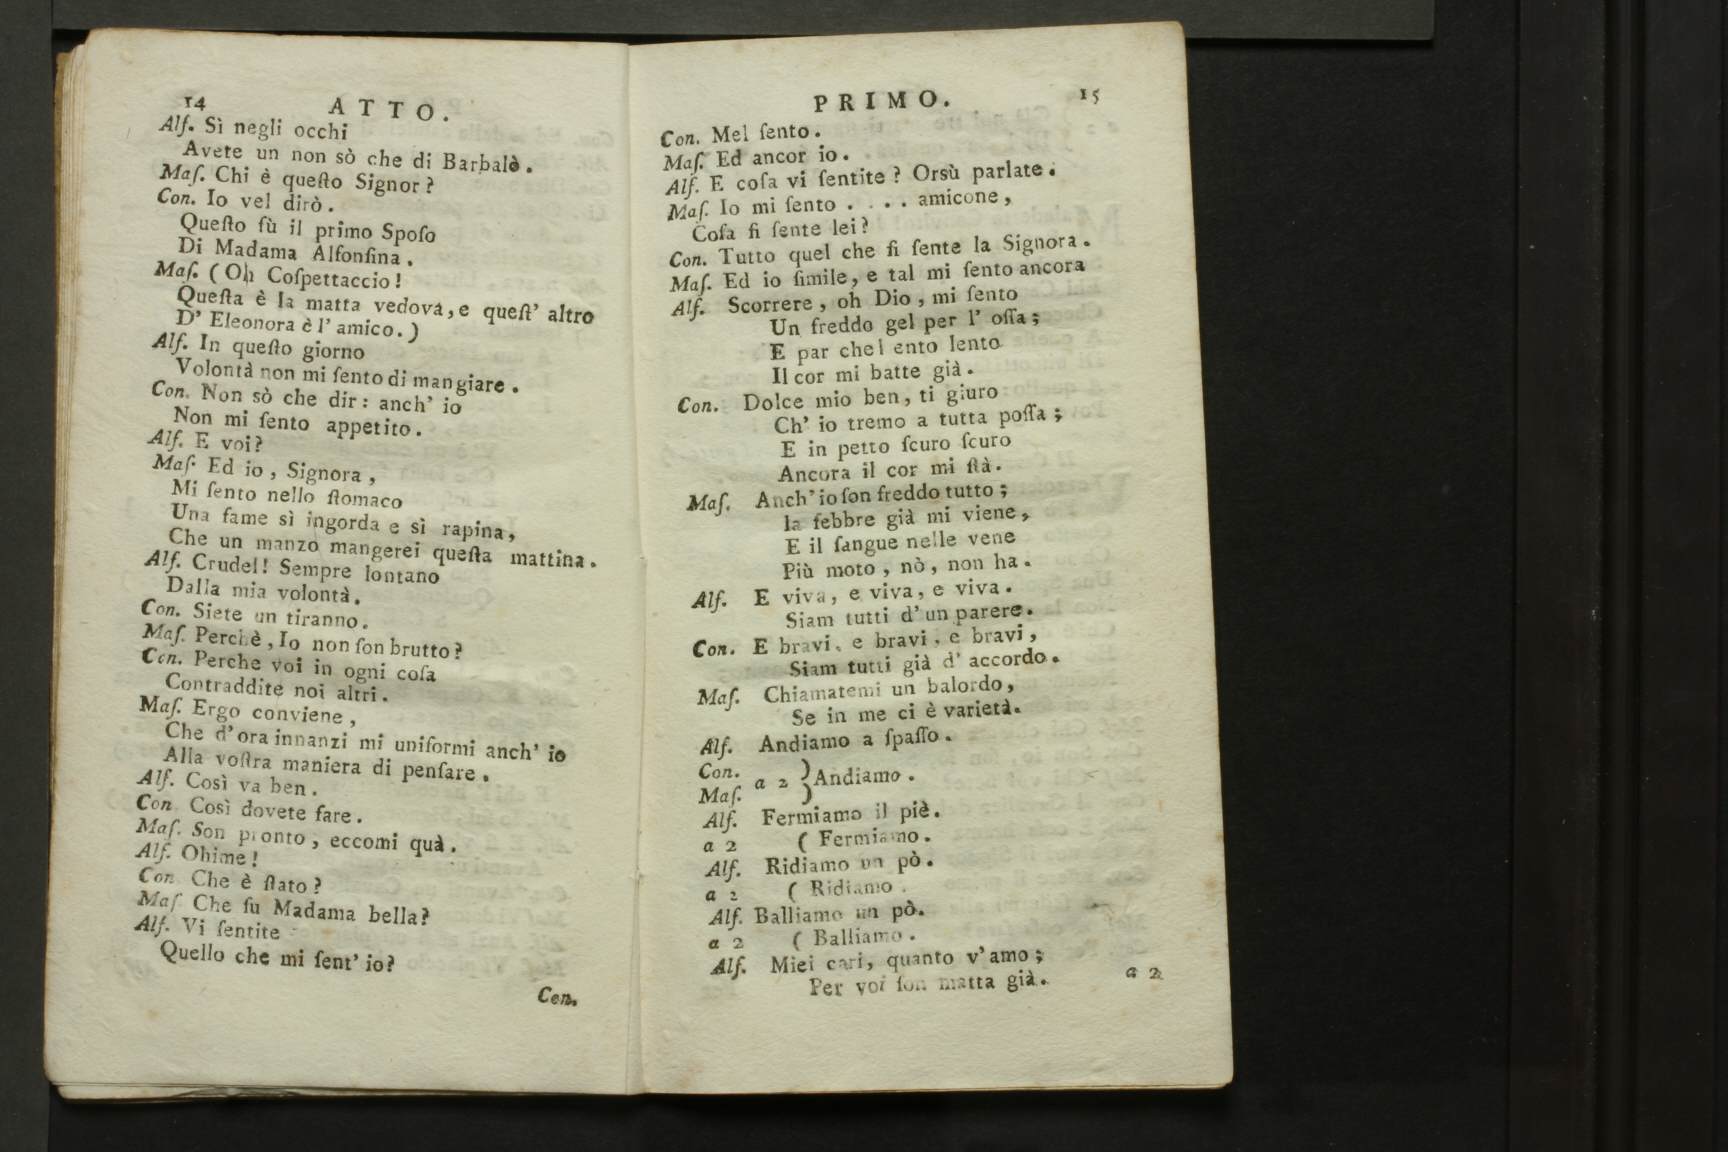 14 ATTO.
Alſ. Sì negli occhi
Avete un non sò che di Barbalè.
Maſ. Chi è queſto Signor?
Con. Io vel dirò.
Queſto fù il primo Spoſo
Di Madama Alfonſina.
Maſ. (Oh Coſpettaccio!
Queſta è la matta vedova, e queſt' altro
D' Eleonora è l' amico.)
Alſ. In queſto giorno
Volontà non mi ſento di mangiare.
Con. Non sò che dir: anch' io
Non mi ſento appetito.
Alſ. E voi?
Maſ. Ed io, Signora,
Mi ſento nello ſtomaco
Una fame sì ingorda e sì rapina,
Che un manzo mangerei queſta mattina.
Alſ. Crudel! Sempre lontano
Dalla mia volontà.
Con. Siete un tiranno.
Maſ. Perchè, Io non ſon brutto?
Con. Perche voi in ogni coſa
Contraddite noi altri.
Maſ. Ergo conviene,
Che d'ora innanzi mi uniformi anch' io
Alla voſtra maniera di penſare.
Alſ. Così va ben.
Con. Così dovete fare.
Maſ. Son pronto, eccomi quà.
Alſ. Ohime!
Con. Che è ſtato?
Maſ. Che fu Madama bella?
Alſ. Vi ſentite
Quello che mi ſent' io?
Con.
PRIMO. 15
Con. Mel ſento.
Maſ. Ed ancor io.
Alſ. E coſa vi ſentite? Orsù parlate.
Maſ. Io mi ſento . . . . amicone,
Coſa ſi ſente lei?
Con. Tutto quel che ſi ſente la Signora.
Maſ. Ed io ſimile, e tal mi ſento ancora
Alſ. Scorrere, oh Dio, mi ſento
Un freddo gel per l' oſſa;
E par che l ento lento
Il cor mi batte già.
Con. Dolce mio ben, ti giuro
Ch' io tremo a tutta poſſa;
E in petto ſcuro ſcuro
Ancora il cor mi ſtà.
Maſ. Anch' io ſon freddo tutto;
la febbre già mi viene,
E il ſangue nelle vene
Più moto, nò, non ha.
Alſ. E viva, e viva, e viva.
Siam tutti d' un parere.
Con. E bravi, e bravi, e bravi,
Siam tutti già d' accordo.
Maſ. Chiamatemi un balordo,
Se in me ci è varietà.
Alſ. Andiamo a ſpaſſo.
Con.
Maſ. a 2 } Andiamo.
Alſ. Fermiamo il piè.
a 2 ( Fermiamo.
Alſ. Ridiamo un pò.
a 2 ( Ridiamo.
Alſ. Balliamo un pò.
a 2 ( Balliamo.
Alſ. Miei cari, quanto v'amo;
Per voi ſon matta già.
a 2